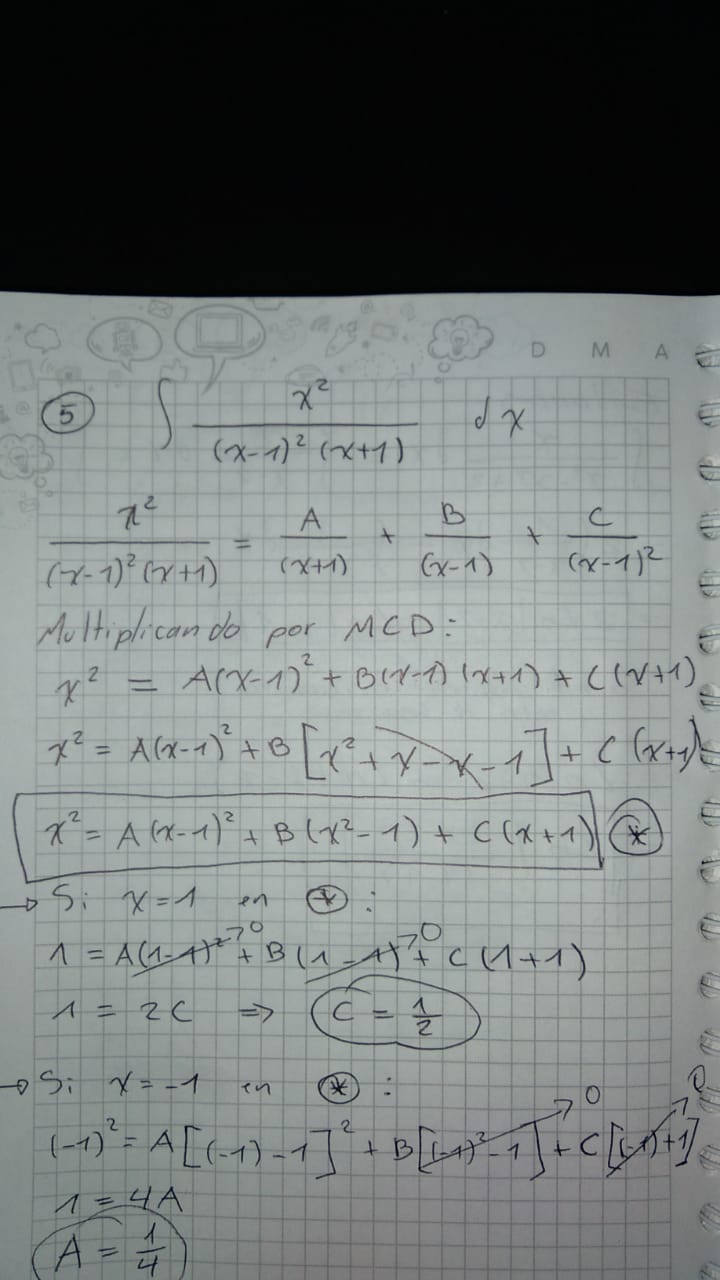 D M A
5 ∫ x² / (x-1)² (x+1) dx
x² / (x-1)² (x+1) = A / (x+1) + B / (x-1) + C / (x-1)²
Multiplicando por MCD:
x² = A(x-1)² + B(x-1)(x+1) + C(x+1)
x² = A(x-1)² + B[x² + x - x - 1] + C(x+1)
x² = A(x-1)² + B(x²-1) + C(x+1) *
→ Si x=1 en * :
1 = A(1-1)²→0 + B(1-1)→0 + C(1+1)
1 = 2C ⇒ C = 1/2
→ Si x=-1 en * :
(-1)² = A[(-1)-1]² + B[(-1)²-1]→0 + C[(-1)+1]→0
1 = 4A
A = 1/4